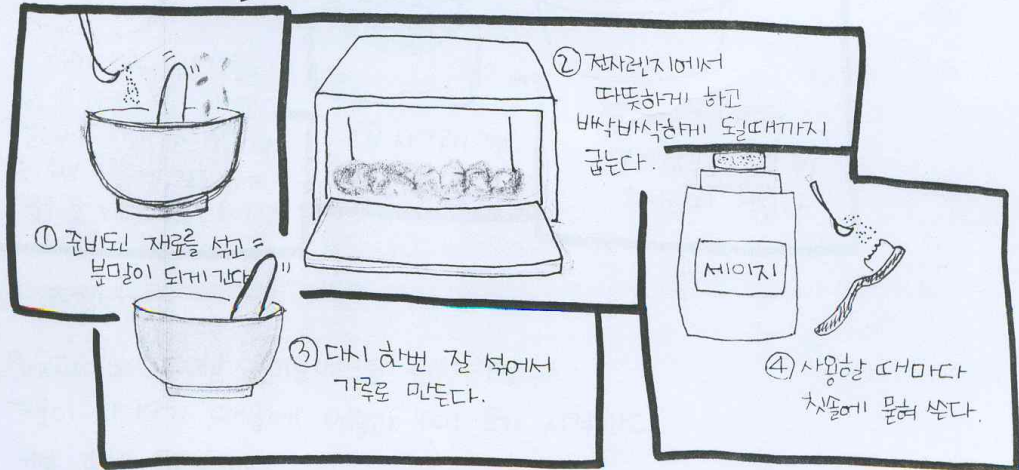 ① 준비된 재료를 섞고
분말이 되게 간다
② 전자렌지에서
따뜻하게 하고
바삭바삭하게 될때까지
굽는다.
③ 다시 한번 잘 섞어서
가루로 만든다.
세이지
④ 사용할 때마다
칫솔에 묻혀 쓴다.